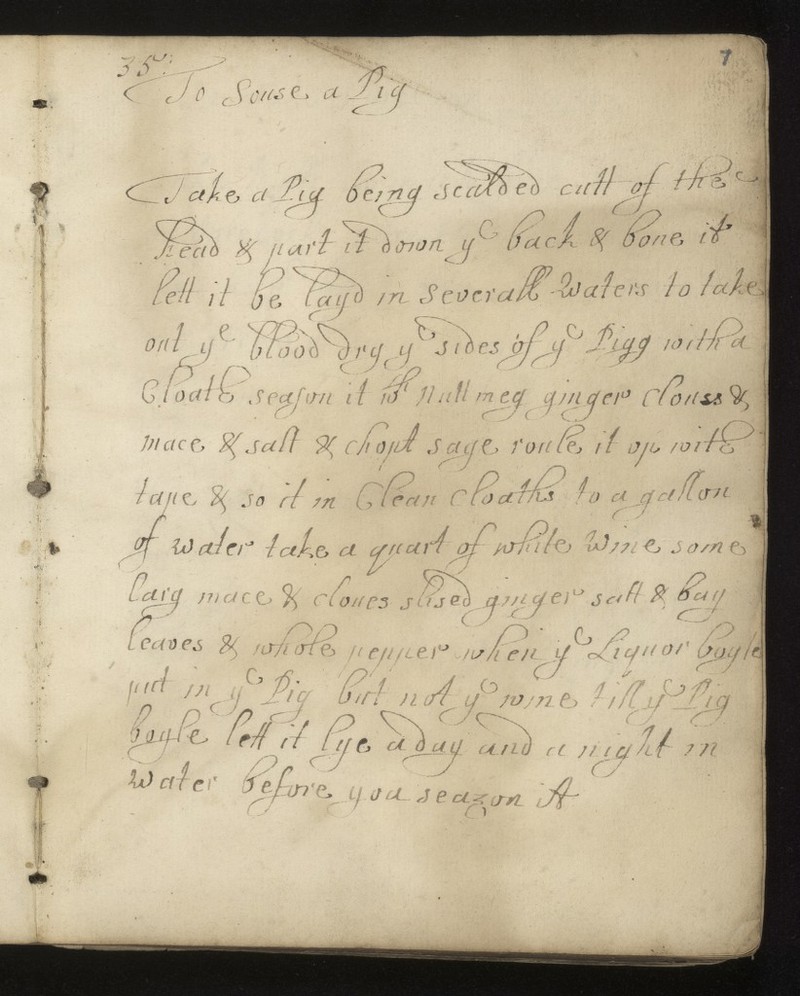 7
35:
To Souse a Pig
Take a Pig being scalded cutt of the
head & part it down ye back & bone it
lett it be layd in severall Waters to take
out ye blood dry ye sides of ye Pigg with a
Cloath season it wth Nuttmeg ginger Clouss &
mace & salt & chopt sage roule it up with
tape & so it in Clean Cloaths to a gallon
of water take a quart of white Wine some
larg mace & cloues slised ginger salt & bay
leaves & whole pepper when ye Liquor boyle
put in ye Pig but not ye wine till ye Pig
boyle lett it lye a day and a night in
Water before you seazon it